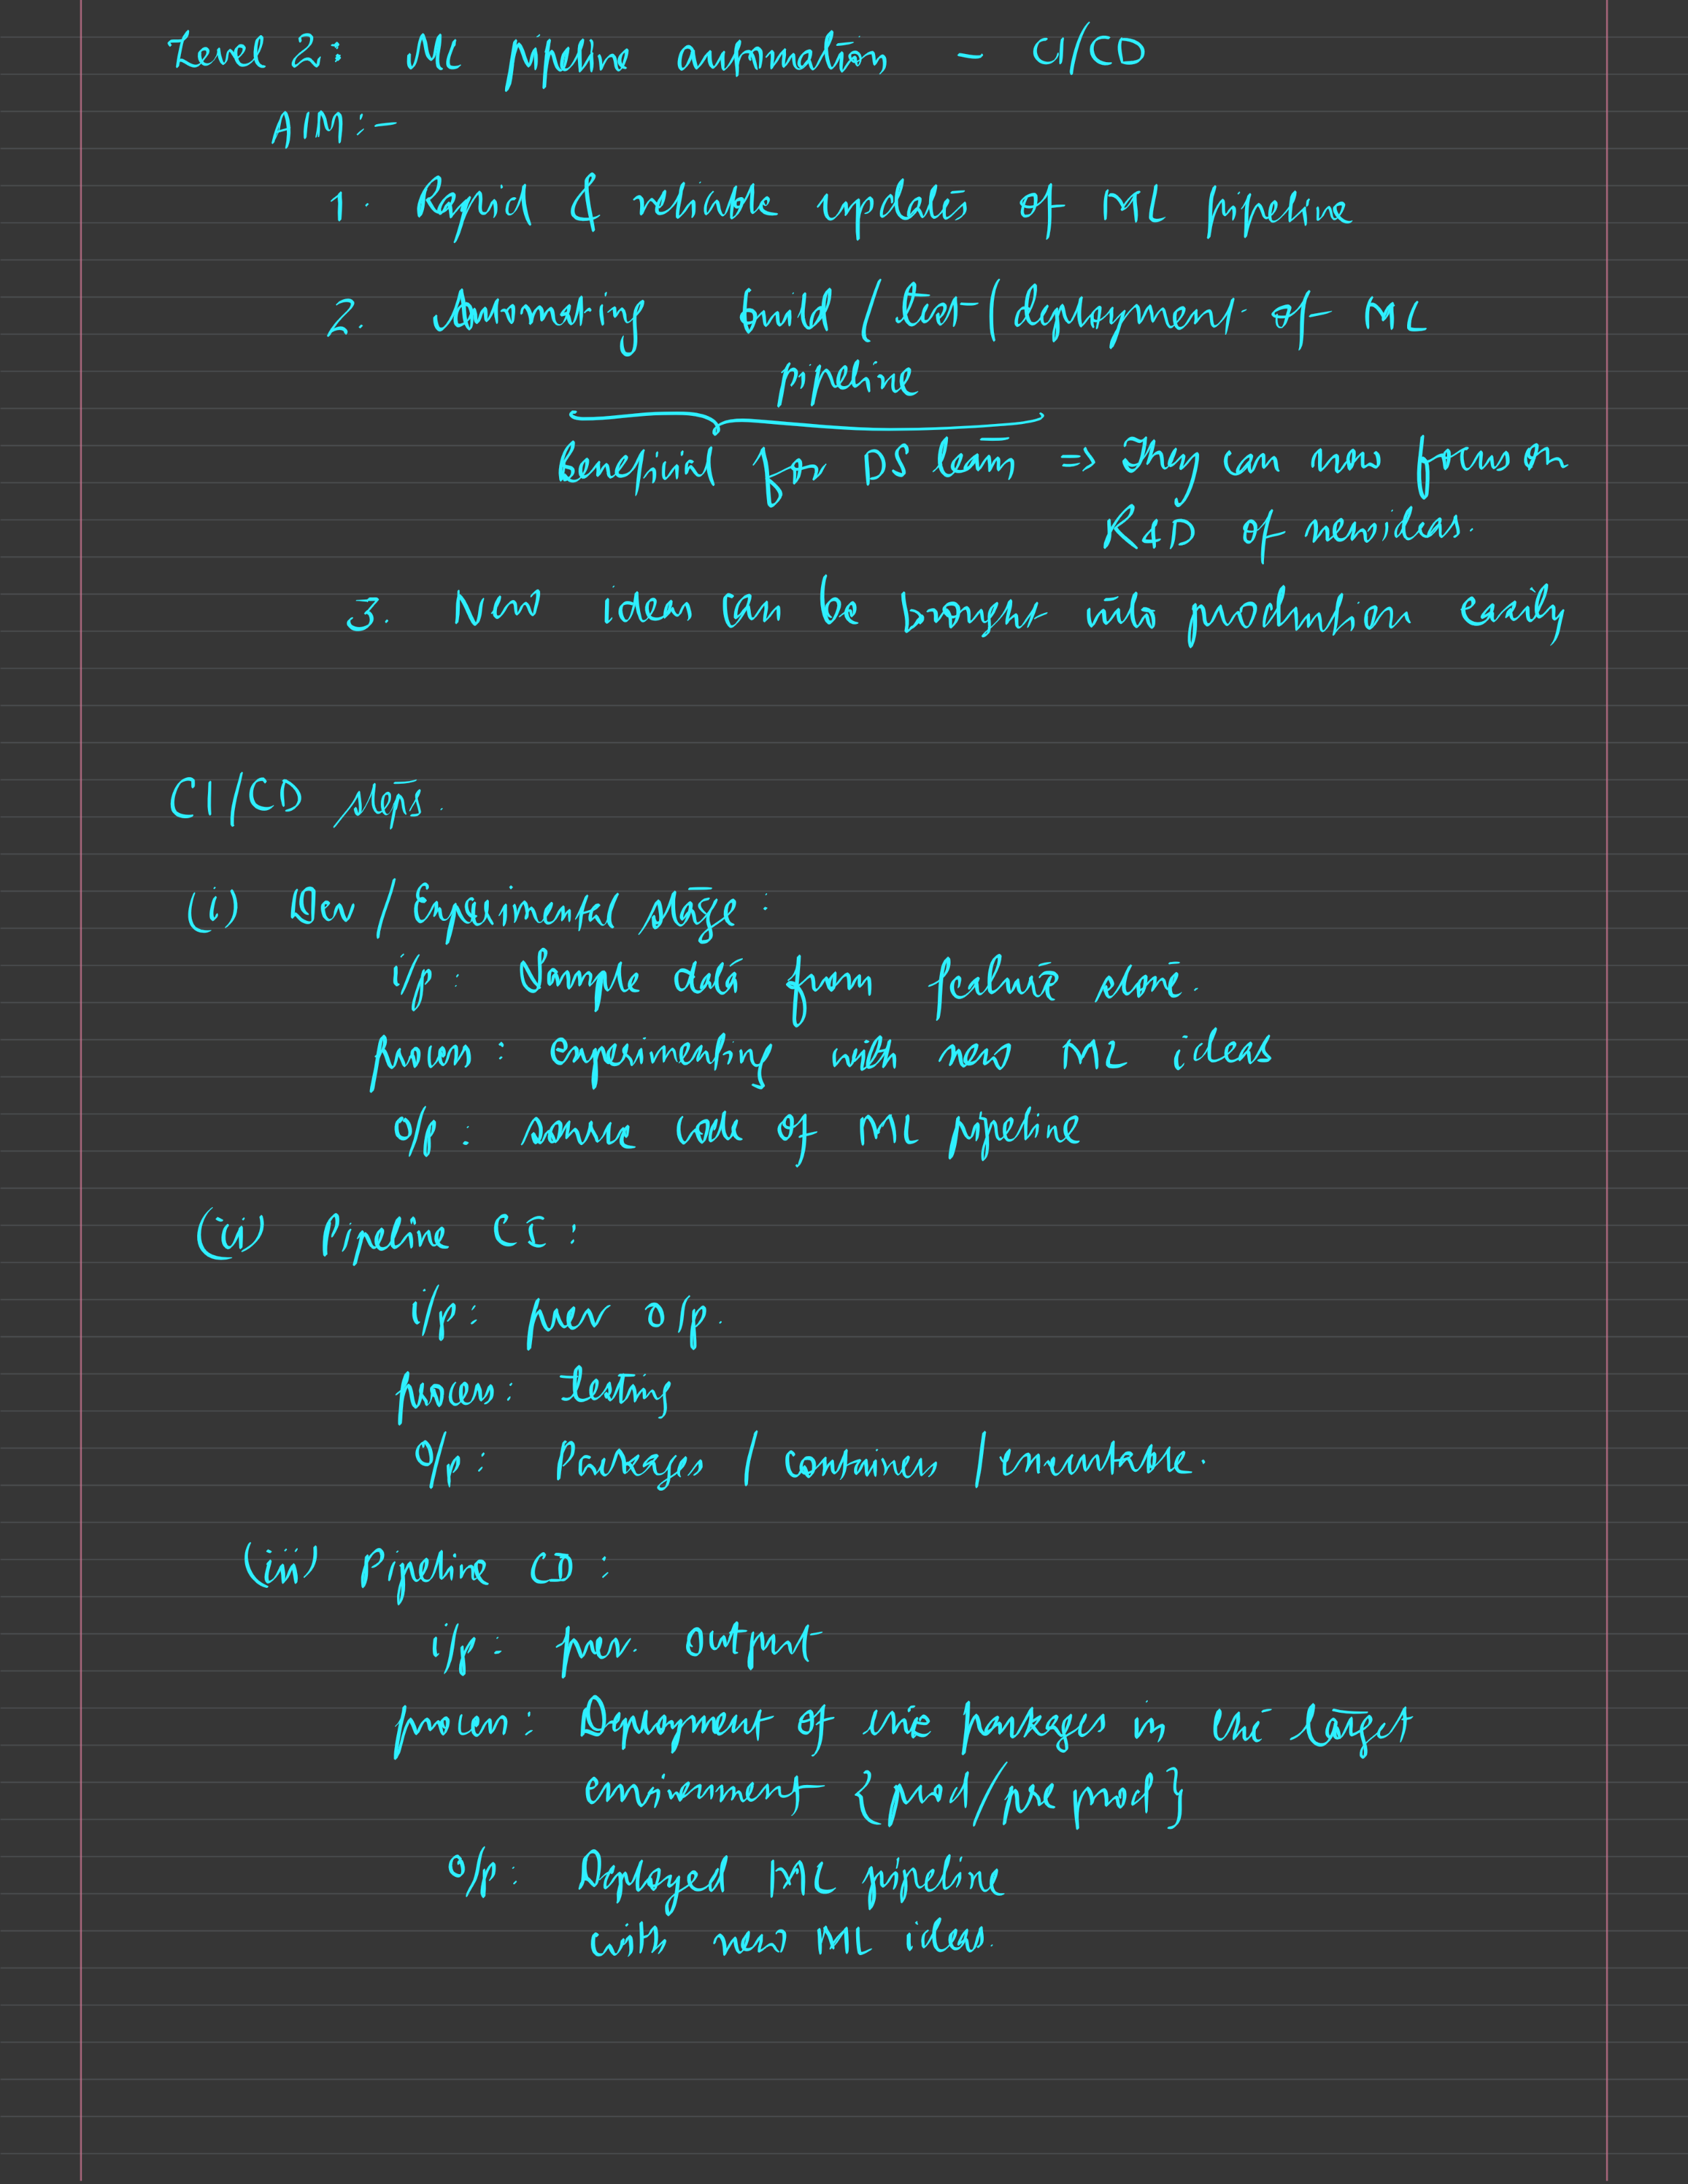 Level 2: ML pipeline automation - CI/CD
AIM:-
1. Rapid & reliable updates of ML pipeline
2. Automating build / test / deployment of ML
pipeline
Beneficial for DS team => They can now focus on
R&D of new ideas.
3. New idea can be brought into production easily
CI/CD steps.
(i) Dev / Experimental stage:
i/p: Sample data from feature store.
process: experimenting with new ML ideas
o/p: source code of ML pipeline
(ii) Pipeline CI:
i/p: prev o/p.
process: testing
o/p: Packages / containers / executable.
(iii) Pipeline CD:
i/p: prev. output
process: Deployment of the packages in the target
environment {prod/pre prod}
o/p: Deployed ML pipeline
with new ML ideas.